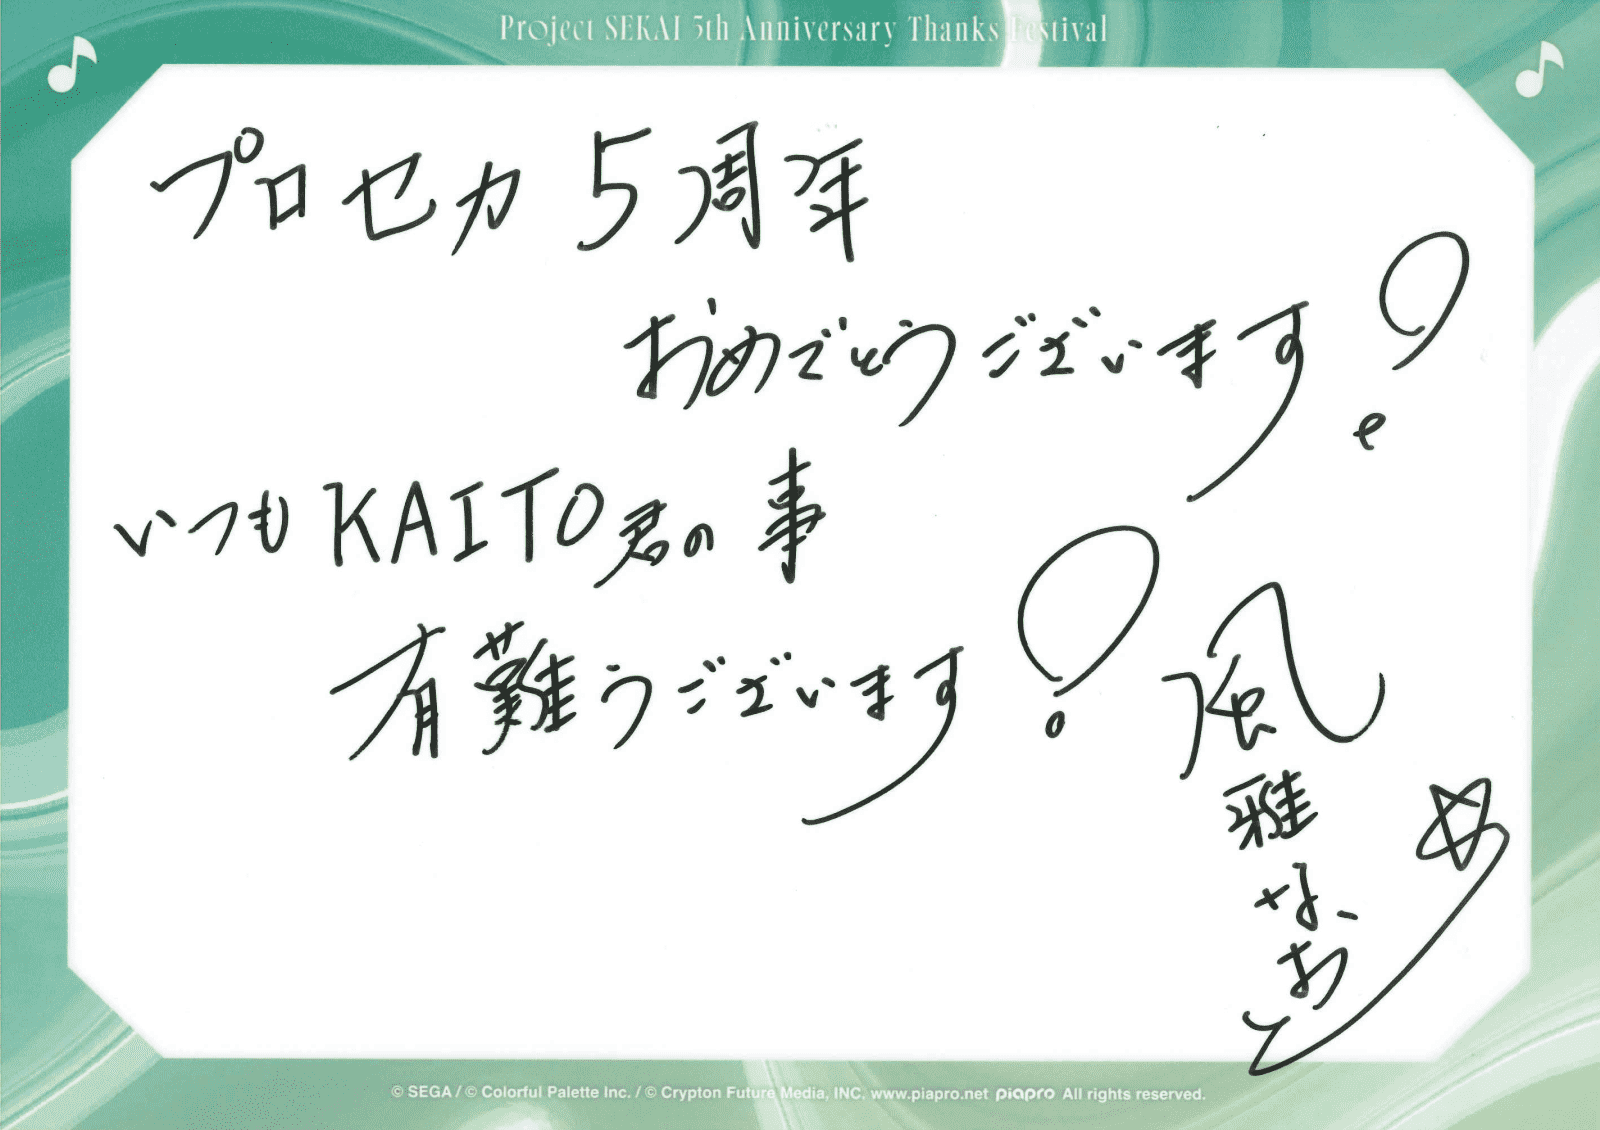 Project SEKAI 5th Anniversary Thanks Festival
プロセカ 5周年
おめでとうございます!
いつもKAITO君の事
有難うございます!
風雅なおと
© SEGA / © Colorful Palette Inc. / © Crypton Future Media, INC. www.piapro.net piapro All rights reserved.